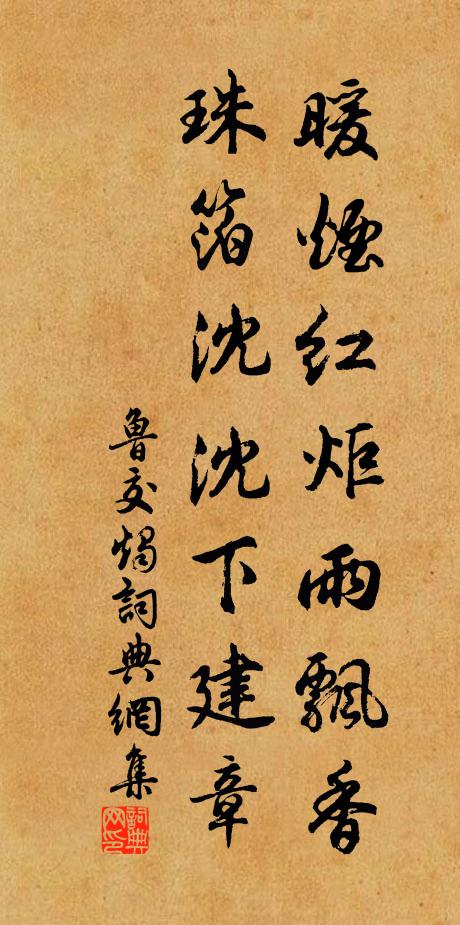 暖煙紅炬雨飄香
珠箔沈沈下建章
魯交燭詞典網集
詞典网印